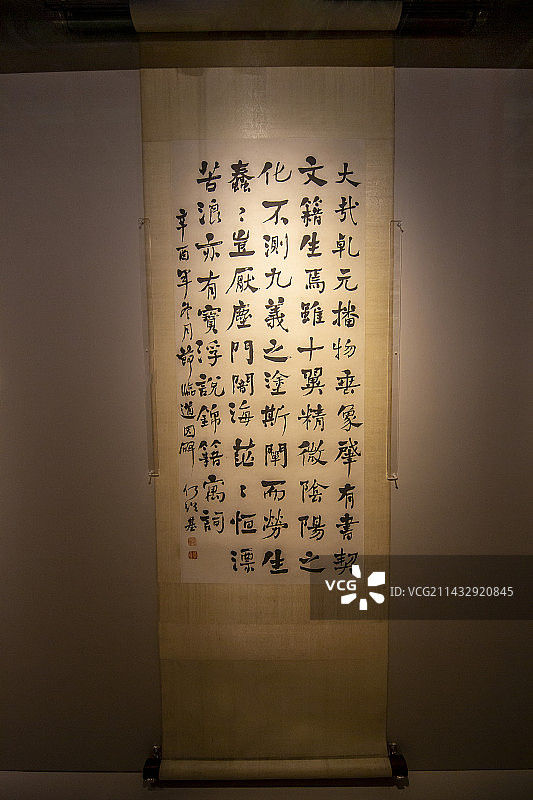 大哉乾元播物垂象肇有書契
文籍生焉雖十翼精微陰陽之
化不測九義之塗斯闡而勞生
蠢〻豈厭塵門闇海茫〻恒漂
苦浪亦有寶浮說錦籍寓詞
辛酉年冬月節臨道因碑 何紹基
VCG
ID: VCG211432920845